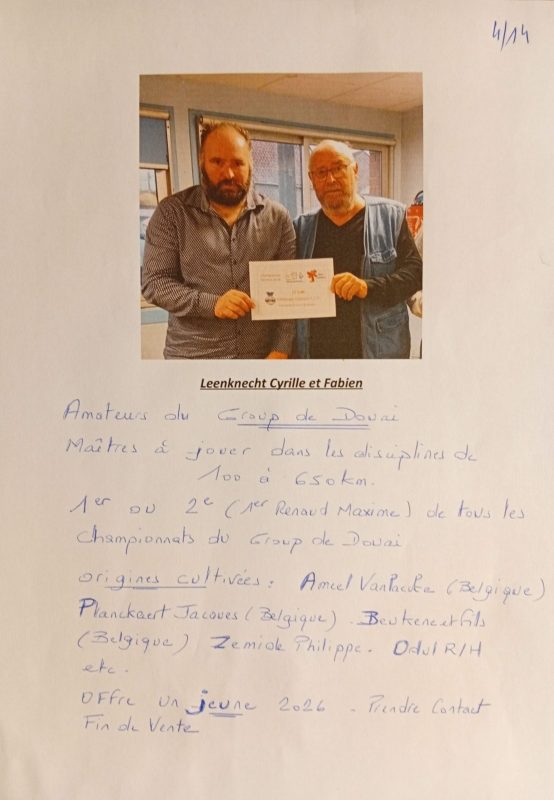 4/14
Leenknecht Cyrille et Fabien
Amateurs du Group de Douai
Maîtres à jouer dans les disciplines de
100 à 650 km.
1er ou 2e (1er Renaud Maxime) de tous les
Championnats du Group de Douai
origines cultivées : Ameel (Belgique)
Planckaert Jacques (Belgique). et fils
(Belgique) Philippe. R/H
etc.
Offre un jeune 2026 - Prendre Contact
Fin de Vente